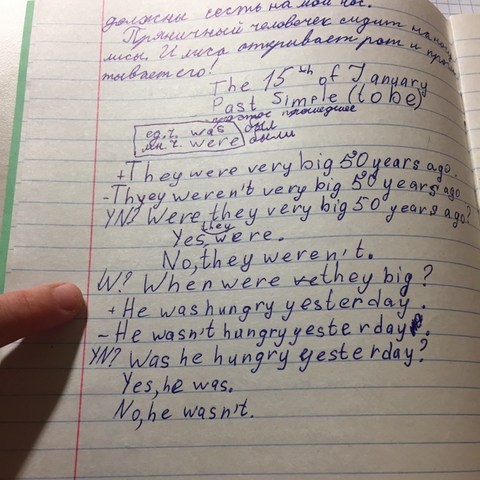 должны сесть на мой нос.
Пряничный человечек сидит на носу
лисы. И лиса открывает рот и прогла-
тывает его!
The 15th of January
Past Simple (to be)
простое прошедшее
ед.ч. was был
мн.ч. were были
+ They were very big 50 years ago.
- Thyey weren't very big 50 years ago
YN? Were they very big 50 years ago?
they
Yes, were.
No, they weren't.
W? When were they big?
+ He was hungry yesterday.
- He wasn't hungry yesterday.
YN? Was he hungry yesterday?
Yes, he was.
No, he wasn't.